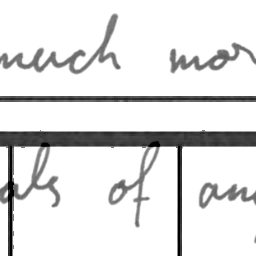 much mor
als of any